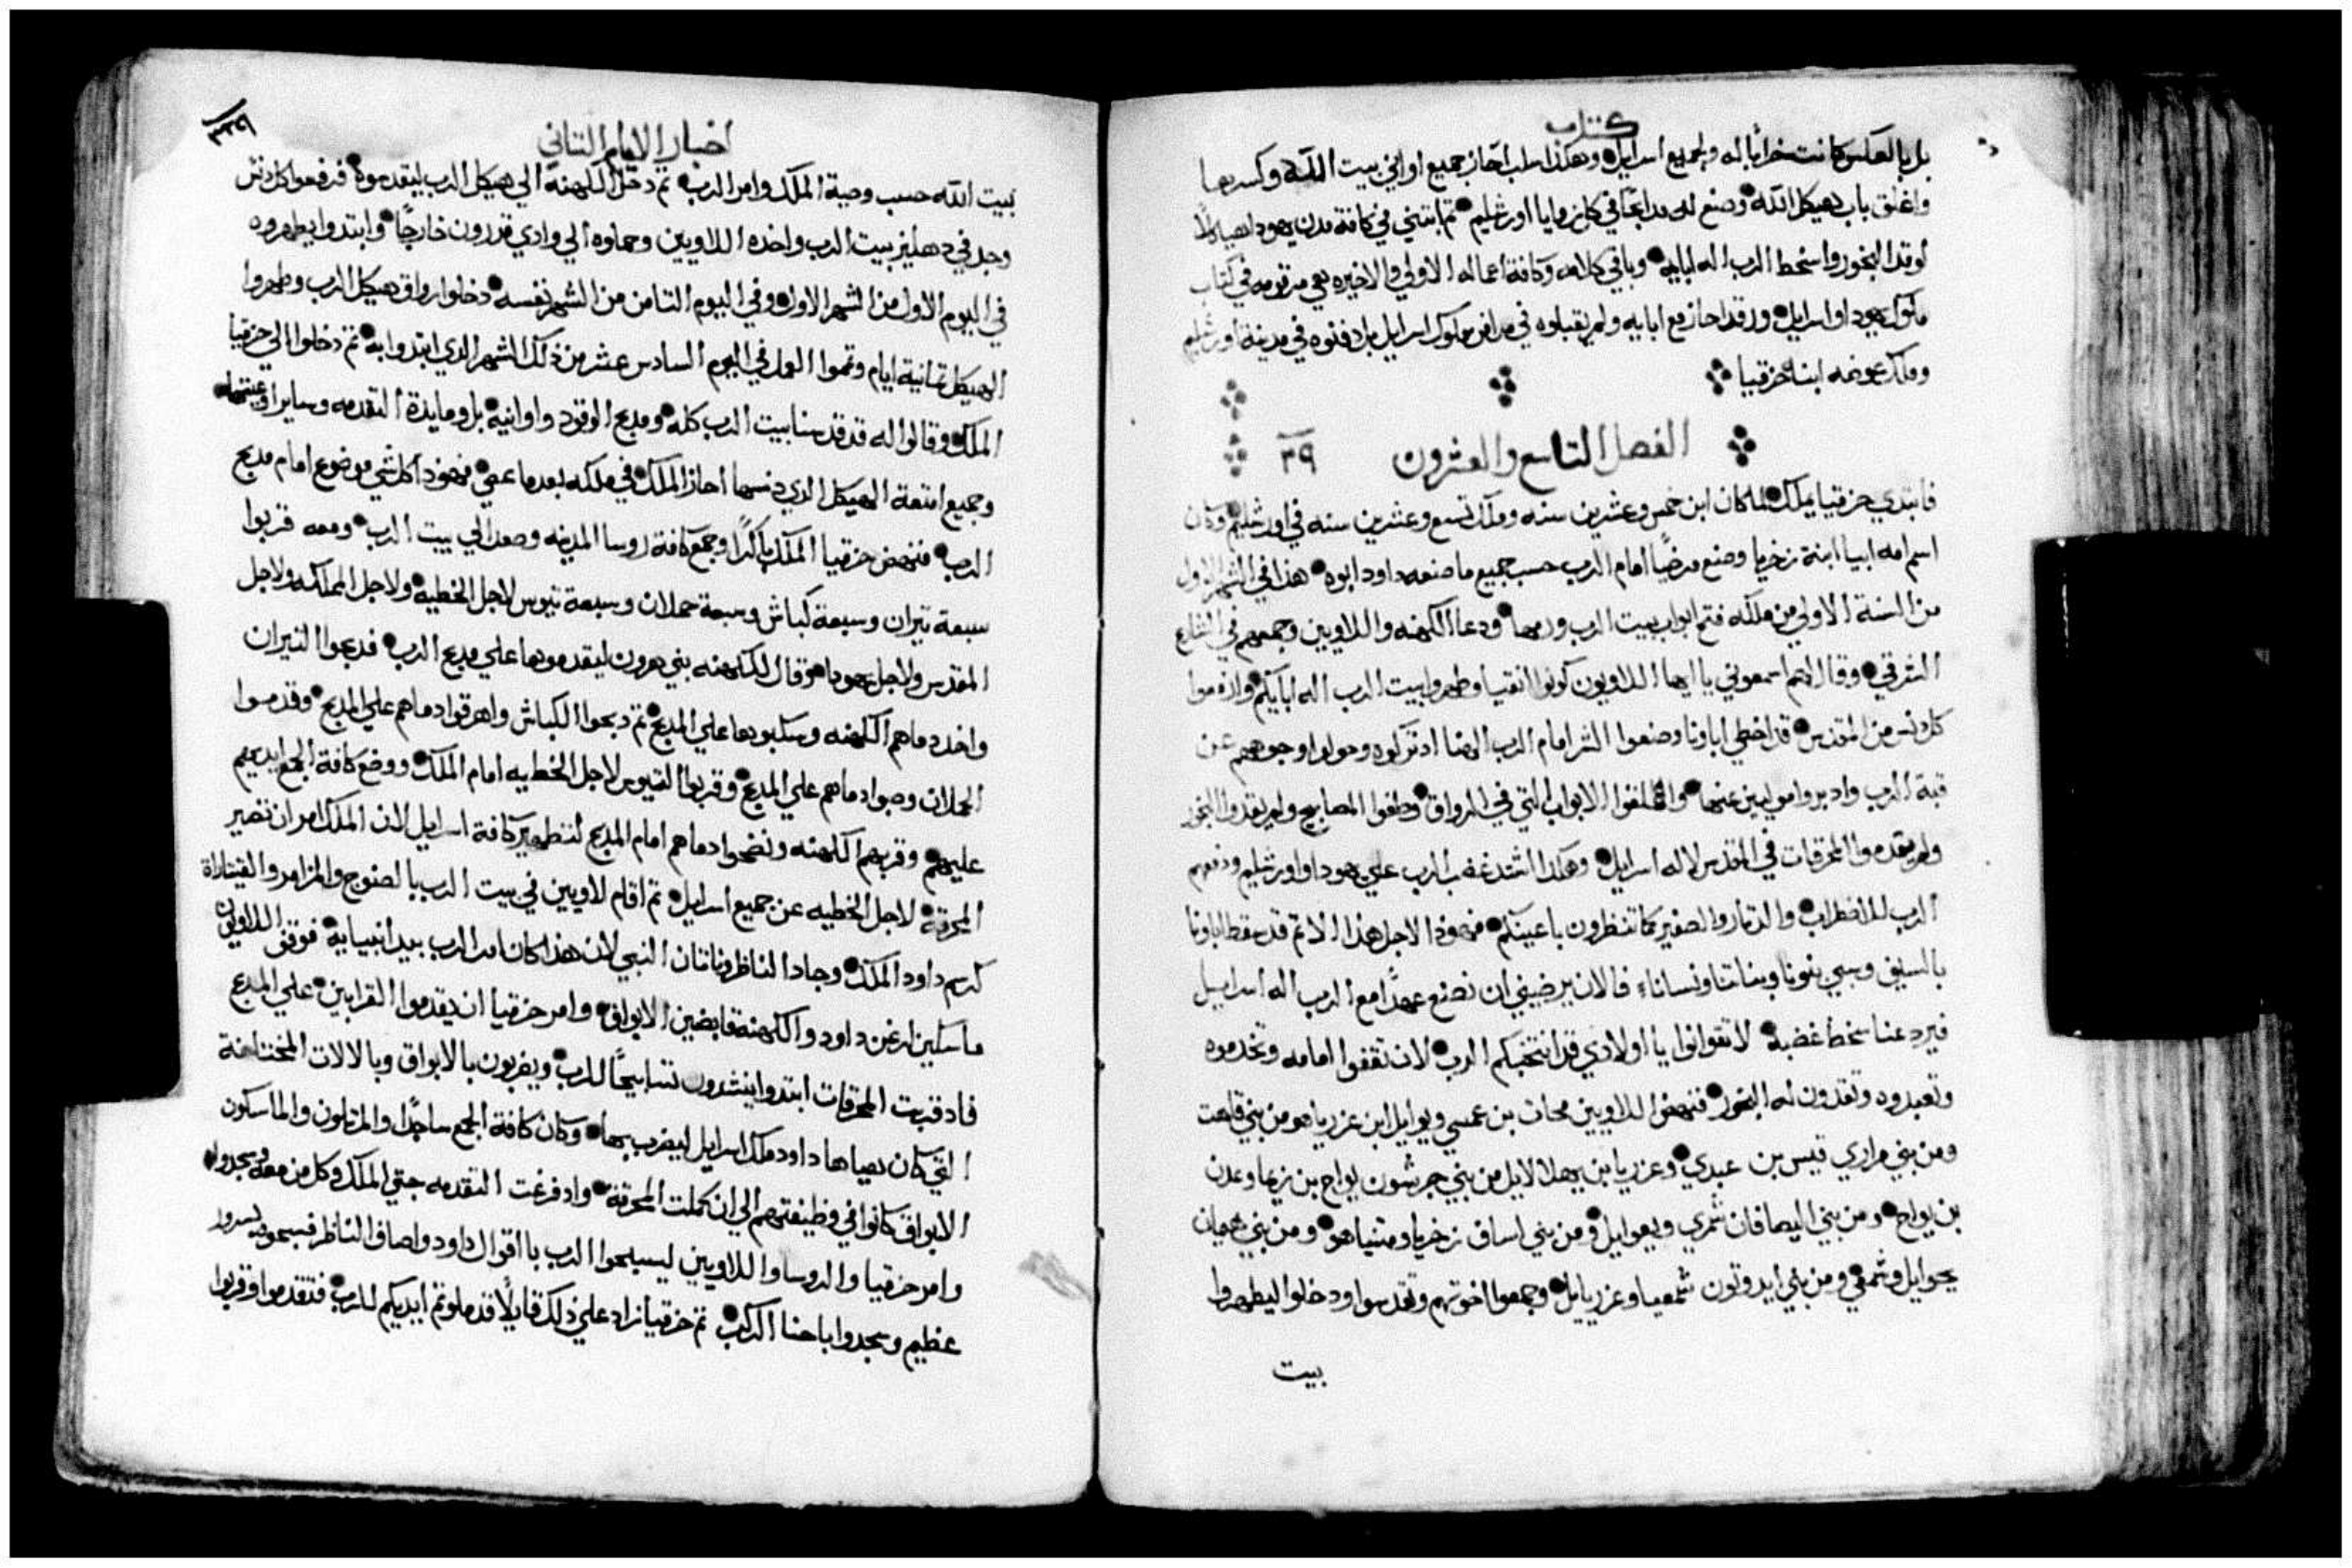 كتاب
بل بالعكس كانت خرابًا له ولجميع اسرايل وهكذا سلب احاز جميع اواني بيت الله وكسرها
واغلق باب هيكل الله وصنع له مدابحًا في كل زوايا اورشليم ثم ابتني في كافة مدن يهودا هياكلًا
لوقد البخور واسخط الرب اله ابايه وباقي كلامه وكافة اعماله الاولي والاخيره هي مرقومه في كتاب
ملوك يهودا واسرايل ورقد احاز مع ابايه ولم يقبلوه في مدافن ملوك اسرايل بل دفنوه في مدينة اورشليم
وملك عوضه ابنه حزقيا
الفصل التاسع والعشرون ٢٩
فابتدي حزقيا يملك لما كان ابن خمس وعشرين سنه وملك تسع وعشرين سنه في اورشليم وكان
اسم امه ابيا ابنة زخريا وصنع مرضيًا امام الرب حسب جميع ما صنعه داود ابوه هذا في الشهر الاول
من السنة الاولي من ملكه فتح ابواب بيت الرب ورمها ودعا الكهنه واللاويين وجمعهم في الشارع
الشرقي وقال لهم اسمعوني يا ايها اللاويون كونوا انقيا وطهروا بيت الرب اله ابايكم وارفعوا
كل دنس من المقدس قد اخطي اباونا وصنعوا الشر امام الرب الهنا اد تركوه وحولوا وجوههم عن
قبة الرب وادبروا موليين عنها واغلقوا الابواب التي في الرواق وطفوا المصابيح ولم يقدوا البخور
ولم يقدموا المحرقات في المقدس لاله اسرايل وهكذا اشتد غضب الرب علي يهودا واورشليم ودفعهم
الرب للاضطراب والدمار والصفير كما تنظرون باعينكم فهودا لاجل هذا الاتم قد سقط اباونا
بالسيف وسبي بنونا وبناتنا ونسانا فالان يرضيني ان نصنع عهدًا مع الرب اله اسرايل
فيرد عنا سخط غضبه لا تتوانوا يا اولادي قد انتخبكم الرب لان تقفوا امامه وتخدموه
وتعبدوه وتقدون له البخور فنهض اللاويين محات بن عمسي ويوايل ابن عزريا هو من بني قاهت
ومن بني مراري قيس بن عبدي وعزريا بن يهلالايل من بني جرشون يواح بن زيما وعدن
بن يواح ومن بني اليصافان شمري ويعوايل ومن بني اساف زخريا ومتنياهو ومن بني هيمان
يحوايل وشمعي ومن بني ايدوتون شمعيا وعزريايل وجمعوا اخوتهم وتقدسوا ودخلوا ليطهروا
بيت
اخبار الايام الثاني
بيت الله حسب وصية الملك وامر الرب ثم دخل الكهنة الي هيكل الرب ليقدسوه فرفعوا كل دنس
وجد في دهليز بيت الرب واخده اللاويين وحملوه الي وادي قدرون خارجًا وابتدوا يطهروه
في اليوم الاول من الشهر الاول وفي اليوم الثامن من الشهر نفسه دخلوا رواق هيكل الرب وطهروا
الهيكل تمانية ايام وتموا العمل في اليوم السادس عشر من ذلك الشهر الذي ابتدوا به ثم دخلوا الي حزقيا
الملك وقالوا له قد قدسنا بيت الرب كله ومدبح الوقود واوانيه بل ومايدة التقدمه وساير اوعيتها
وجميع امتعة الهيكل الذي دنسها احاز الملك في ملكه بعدما عصي فهودا كل شي موضوع امام مدبح
الرب فنهض حزقيا الملك باكرًا وجمع كافة روسا المدينه وصعد الي بيت الرب ومعه قربوا
سبعة تيران وسبعة كباش وسبعة حملان وسبعة تيوس لاجل الخطيه ولاجل المملكه ولاجل
المقدس ولاجل يهودا وقال للكهنه بني هرون ليقدموها علي مدبح الرب فدبحوا التيران
واخد دماهم الكهنه وسكبوها علي المدبح ثم دبحوا الكباش واهرقوا دماهم علي المدبح وقدموا
الحملان وصبوا دماهم علي المدبح وقربوا التيوس لاجل الخطيه امام الملك ووضع كافة الجمع ايديهم
عليهم وقربهم الكهنه ونضحوا دماهم امام المدبح لتطهير كافة اسرايل لان الملك امر ان تصير
المحرقه لاجل الخطيه عن جميع اسرايل ثم اقام لاويين في بيت الرب بالصنوج والمزامر والقيتاراة
كرسم داود الملك وجاد الناظر وناتان النبي لان هذا كان امر الرب بيد انبيايه فوقف اللاويون
ماسكين ارغن داود والكهنة قابضين الابواق وامر حزقيا ان يقدموا القرابين علي المدبح
فاد قربت المحرقات ابتدوا ينشدون تسابيحًا للرب ويضربون بالابواق وبالالات المختلفة
التي كان هياها داود ملك اسرايل ليضرب بها وكان كافة الجمع ساجدًا والمرتلون والماسكون
الابواق كانوا في وظيفتهم الي ان كملت المحرقة واد فرغت التقدمه جتي الملك وكل من معه وسجدوا
وامر حزقيا والروسا واللاويين ليسبحوا الرب باقوال داود واصاف الناظر فسبحوه بسرور
عظيم وسجدوا باحنا الركب ثم حزقيا زاد علي ذلك قايلًا قد ملوتم ايديكم للرب فتقدموا وقربوا